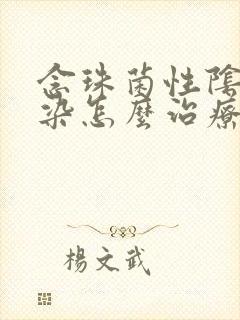 念珠菌性陰
染怎麼治療
楊文武